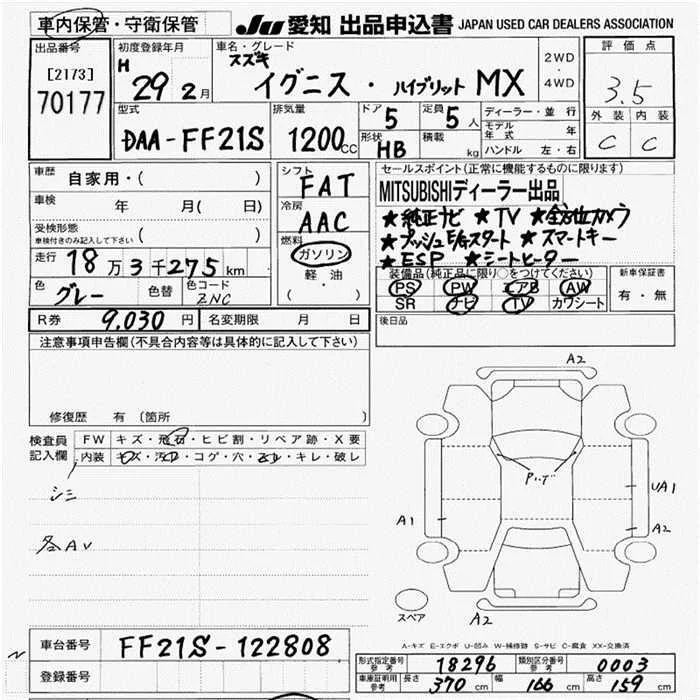 車内保管・守衛保管
JU 愛知 出品申込書 JAPAN USED CAR DEALERS ASSOCIATION
出品番号
[2173]
70177
初度登録年月
H 29 2月
車名・グレード
スズキ
イグニス・ハイブリット MX
2WD
・
4WD
評価点
3.5
外装 内装
C C
型式
DAA-FF21S
排気量
1200cc
ドア 5
定員 5人
形状 HB
積載 kg
ディーラー・並行
モデル年式 年
ハンドル 左・右
車歴 自家用・( )
車検 年 月( 日)
受検形態
車検付きのみ記入して下さい ( )
走行 18万3千275km
色 グレー 色替 色コード ZNC
シフト
FAT
冷房
AAC
燃料
ガソリン
軽油
( ・ )
セールスポイント(正常に機能するものに限ります)
MITSUBISHIディーラー出品
★純正ナビ ★TV ★全方位カメラ
★プッシュE/Gスタート ★スマートキー
★ESP ★シートヒーター
装備品(純正品に限り○をつけてください)
PS PW エアB AW
SR ナビ TV カワシート
新車保証書
有・無
R券 9,030円 名変期限 月 日
後日品
注意事項申告欄(不具合内容等は具体的に記入して下さい)
修復歴 有(箇所 )
検査員
記入欄
FW キズ・飛石・ヒビ割・リペア跡・X要
内装 キズ・汚レ・コゲ・穴・ヨレ・キレ・破レ
シミ
各AV
A2
P.レプ
A1
UA1
A2
スペア
A2
A-キズ E-エクボ U-凹み W-補修跡 S-サビ C-腐食 XX-交換済
車台番号 FF21S-122808
登録番号
型式指定番号 参考 18296 類別区分番号 参考 0003
車庫証明用 参考 長さ 370cm 幅 166cm 高さ 159cm